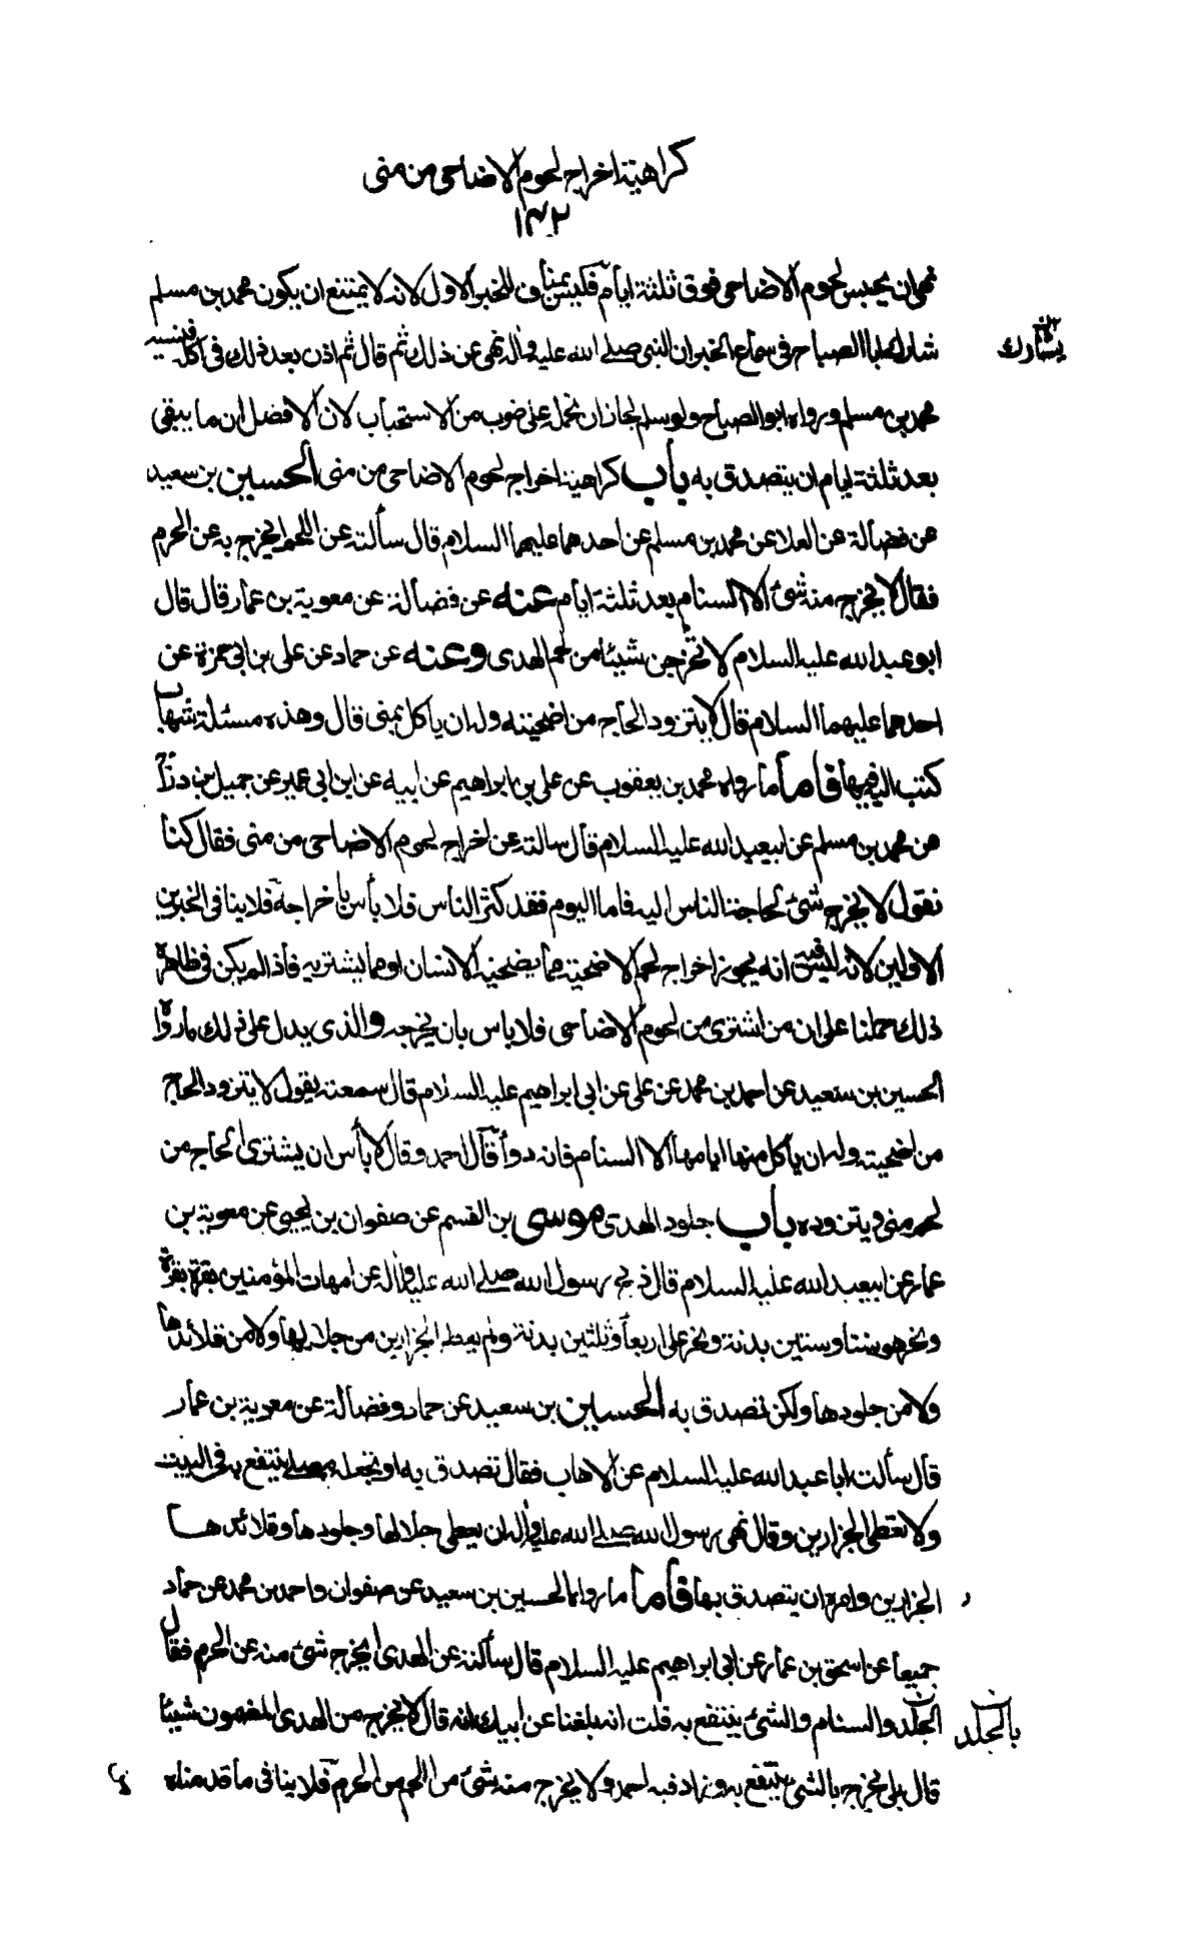 كراهية اخراج لحوم الاضاحى من منى
١٤٢
نهى ان يحبس لحوم الاضاحى فوق ثلثة ايام فليس ينافى الخبر الاول لانه لا يمتنع ان يكون محمد بن مسلم
يشارك
شارك ابا الصباح فى سماع الخبر ان النبى صلى الله عليه وآله نهى عن ذلك ثم قال ثم اذن بعد ذلك فى اكله فنسيه
محمد بن مسلم ورواه ابو الصباح ولو سلم لجاز ان نحمل على ضرب من الاستحباب لان الافضل ان ما يبقى
بعد ثلثة ايام ان يتصدق به باب كراهية اخراج لحوم الاضاحى من منى الحسين بن سعيد
عن فضالة عن العلا عن محمد بن مسلم عن احدهما عليهما السلام قال سألته عن اللحم ايخرج به عن الحرم
فقال لا يخرج منه شئ الا السنام بعد ثلثة ايام عنه عن فضالة عن معوية بن عمار قال قال
ابو عبد الله عليه السلام لا تخرجن شيئا من لحم الهدى وعنه عن حماد عن على بن ابى حمزة عن
احدهما عليهما السلام قال لا يتزود الحاج من اضحيته وله ان ياكل بمنى قال وهذه مسئلة شهاب
كتب اليه فيها فاما ما رواه محمد بن يعقوب عن على بن ابراهيم عن ابيه عن ابن ابى عمير عن جميل بن دراج
عن محمد بن مسلم عن ابيعبد الله عليه السلام قال سالته عن اخراج لحوم الاضاحى من منى فقال كنا
نقول لا يخرج شئ لحاجة الناس اليه فاما اليوم فقد كثر الناس فلا بأس باخراجه فلا ينافى الخبرين
الاولين لانه ليس فيه انه يجوز اخراج لحم الاضحية مما يضحيه الانسان او مما يشتريه فاذا لم يكن فى ظاهره
ذلك حملنا على ان من اشترى من لحوم الاضاحى فلا باس بان يخرجه والذى يدل على ذلك ما رواه
الحسين بن سعيد عن احمد بن محمد عن على عن ابى ابراهيم عليه السلام قال سمعته يقول لا يتزود الحاج
من اضحيته وله ان ياكل منها ايامها الا السنام فانه دواء قال احمد وقال لا بأس ان يشترى الحاج من
لحم منى ويتزوده باب جلود الهدى موسى بن القسم عن صفوان بن يحيى عن معوية بن
عمار عن ابيعبد الله عليه السلام قال ذبح رسول الله صلى الله عليه وآله عن امهات المؤمنين بقرة بقرة
ونحر هو ستا وستين بدنة ونحر على اربعا وثلثين بدنة ولم يعط الجزارين من جلالها ولا من قلائدها
ولا من جلودها ولكن تصدق به الحسين بن سعيد عن حماد وفضالة عن معوية بن عمار
قال سألت ابا عبد الله عليه السلام عن الاهاب فقال تصدق به او تجعله مصلى ينتفع به فى البيت
ولا تعطى الجزارين وقال نهى رسول الله صلى الله عليه وآله ان يعطى جلالها وجلودها وقلائدها
الجزارين وامره ان يتصدق بها فاما ما رواه الحسين بن سعيد عن صفوان واحمد بن محمد عن حماد
جميعا عن اسحق بن عمار عن ابى ابراهيم عليه السلام قال سألته عن الهدى ايخرج شئ منه عن الحرم فقال
بالجلد
الجلد والسنام والشئ ينتفع به قلت انه بلغنا عن ابيك انه قال لا يخرج من الهدى المضمون شيئا
قال بلى يخرج بالشئ ينتفع به وزاد فيه احمد ولا يخرج منه شئ من اللحم من الحرم فلا ينافى ما قدمناه